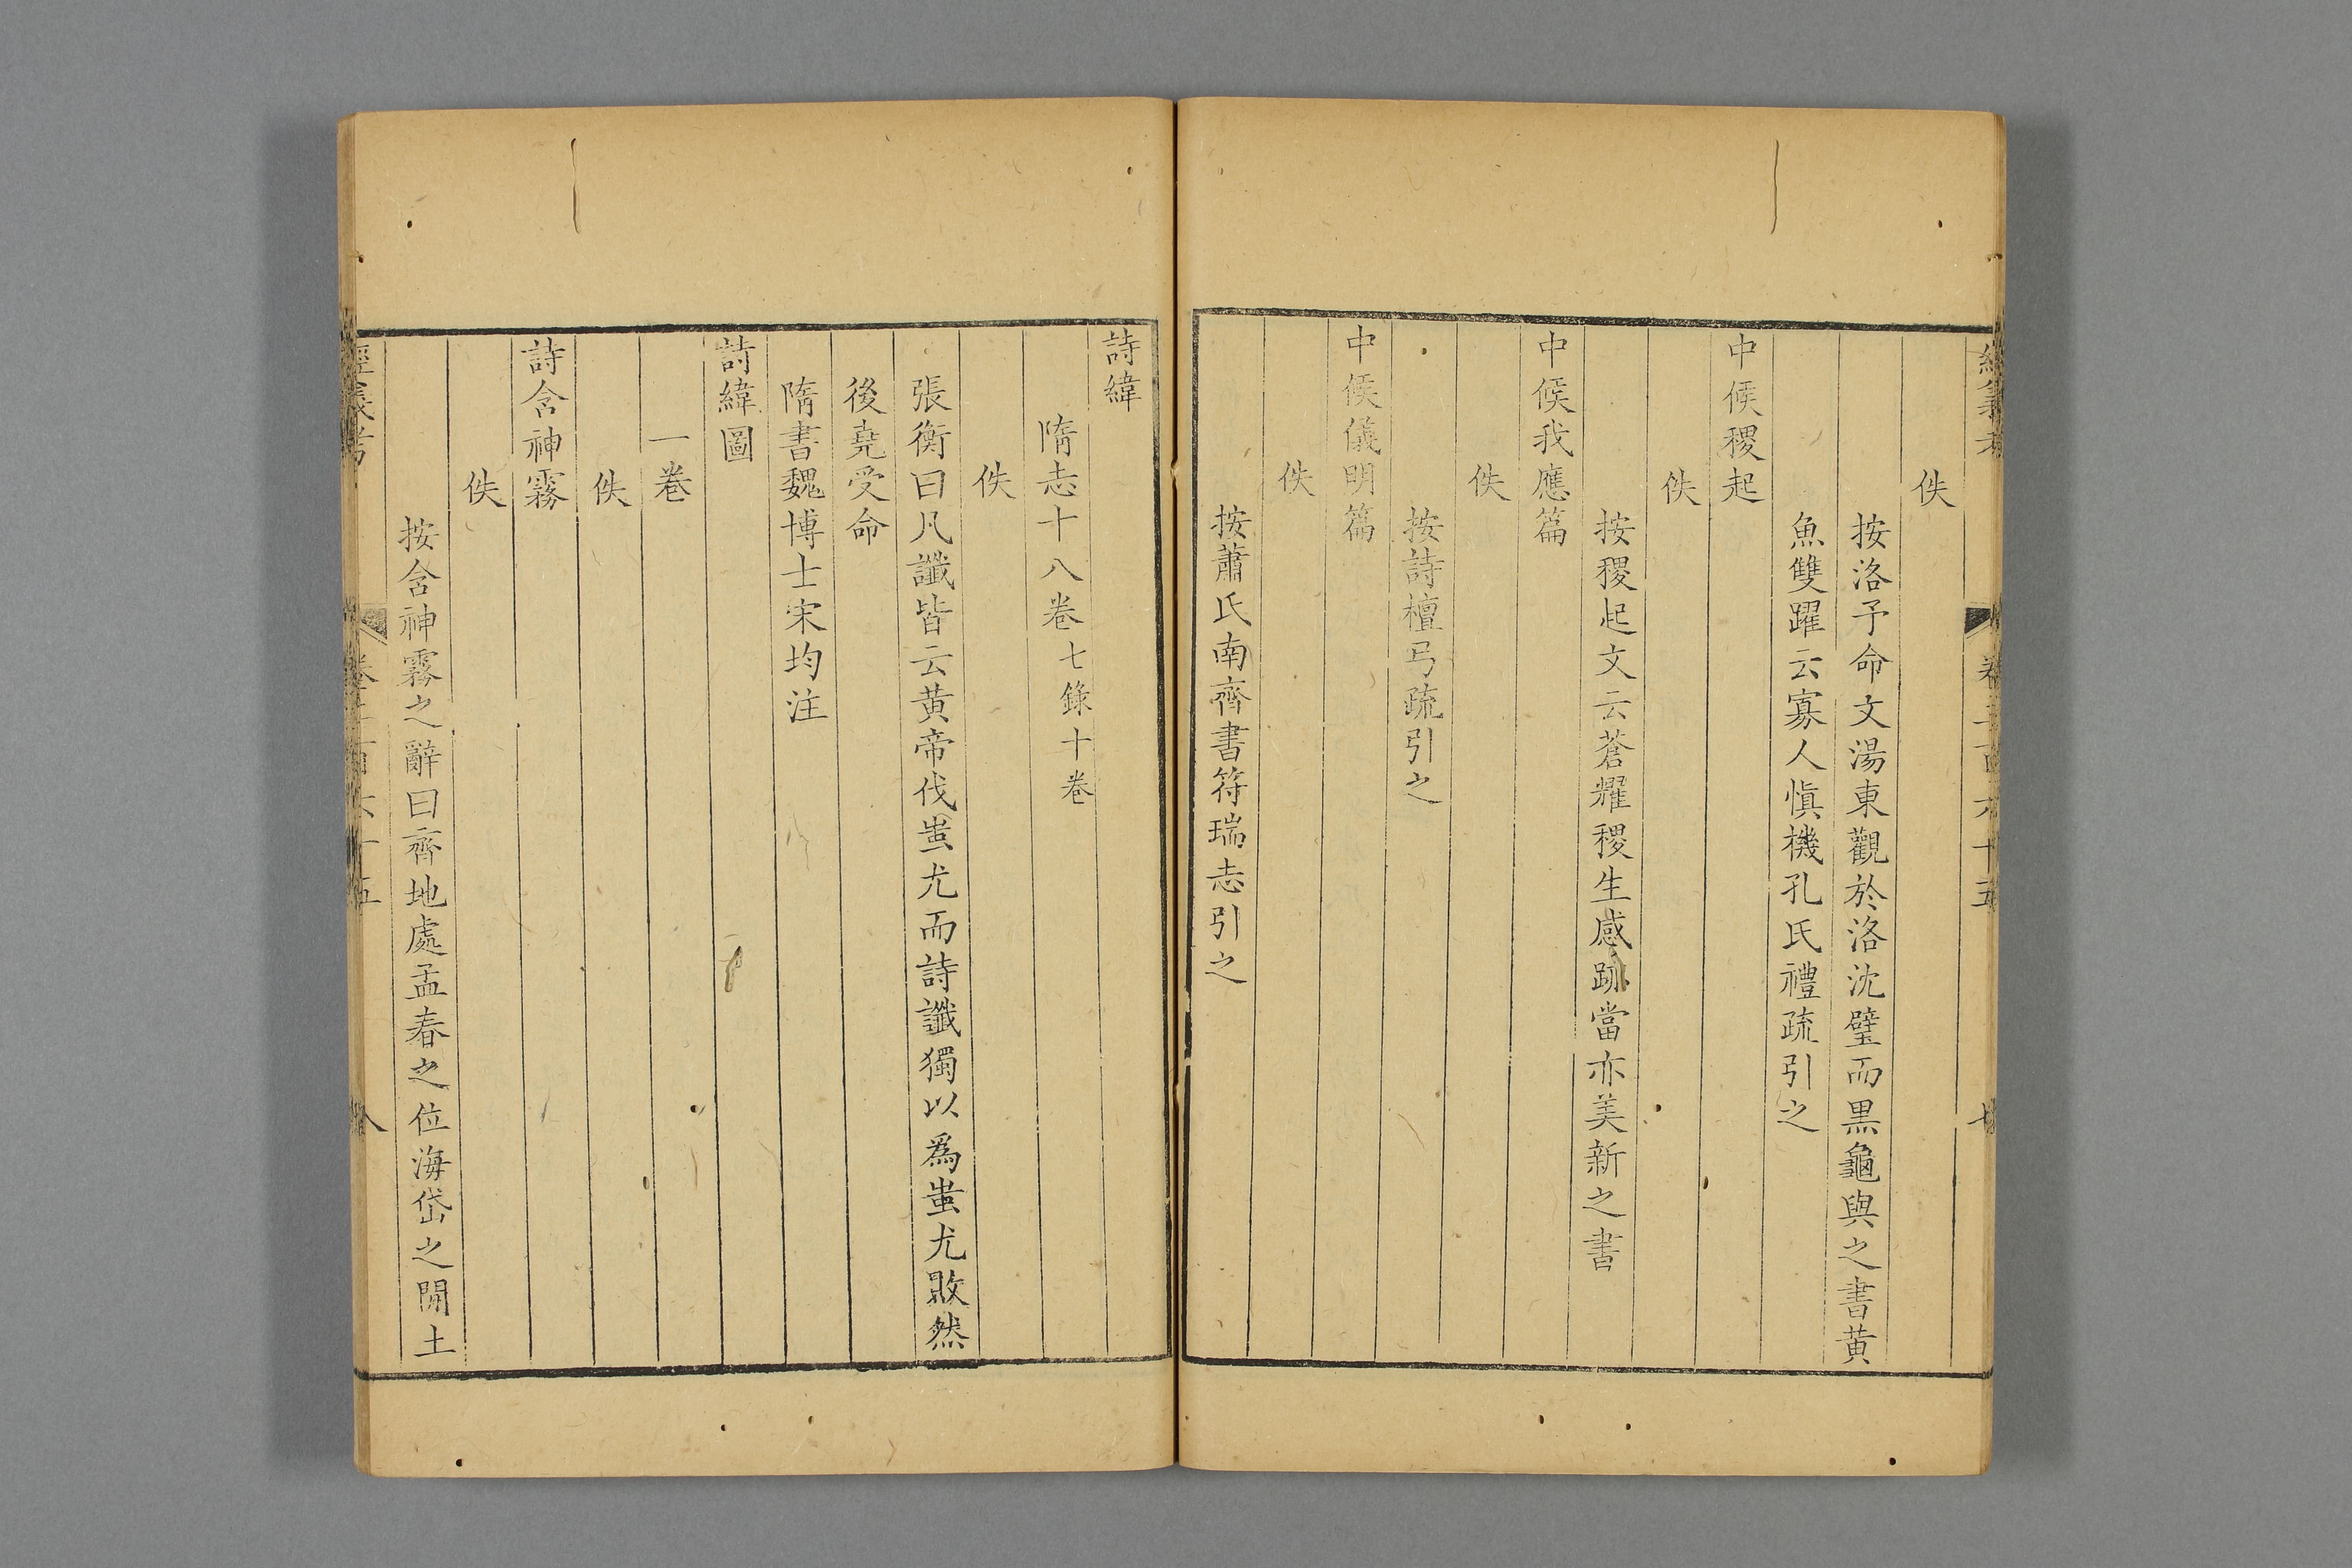 佚
按洛予命文湯東觀於洛沈璧而黑龜與之書黄
魚雙躍云寡人慎機孔氏禮疏引之
中候稷起
佚
按稷起文云蒼耀稷生感跡當亦美新之書
中候我應篇
佚
按詩檀弓疏引之
中候儀明篇
佚
按蕭氏南齊書符瑞志引之
詩緯
隋志十八卷七錄十卷
佚
張衡曰凡讖皆云黄帝伐蚩尤而詩讖獨以爲蚩尤敗然
後堯受命
隋書魏博士宋均注
詩緯圖
一卷
佚
詩含神霧
佚
按含神霧之辭曰齊地處孟春之位海岱之間土
經義考
卷二百六十五
八